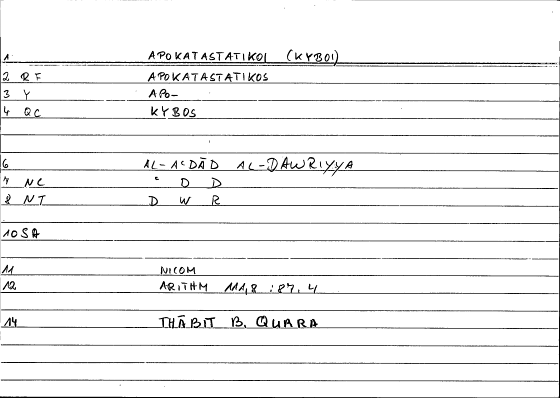 1 APOKATASTATIKOI (KYBOI)
2 RF APOKATASTATIKOS
3 Y APO-
4 QC KYBOS
6 AL-AʿDĀD AL-DAWRIYYA
7 NC ʿ D D
8 NT D W R
10 SA
11 NICOM
12 ARITHM 111,8 : 87.4
14 THĀBIT B. QURRA